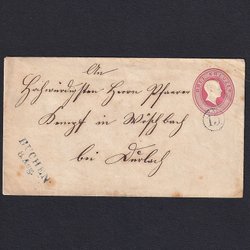 An
Hochwürdigsten Herrn Pfarrer
Kempf in Wöschbach
bei Durlach
BUCHEN